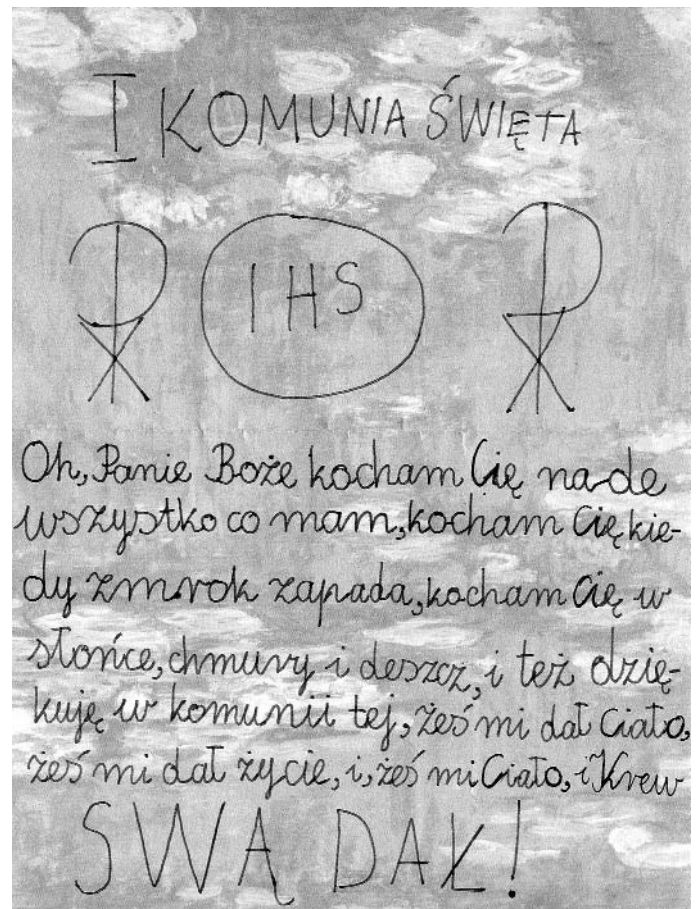 I KOMUNIA ŚWIĘTA
IHS
Oh, Panie Boże kocham Cię na de
wszystko co mam, kocham Cię kie-
dy zmrok zapada, kocham Cię w
słońce, chmury i deszcz, i też dzię-
kuję w komunii tej, żeś mi dał Ciało,
żeś mi dał życie, i, żeś mi Ciało, i Krew
SWĄ DAŁ!